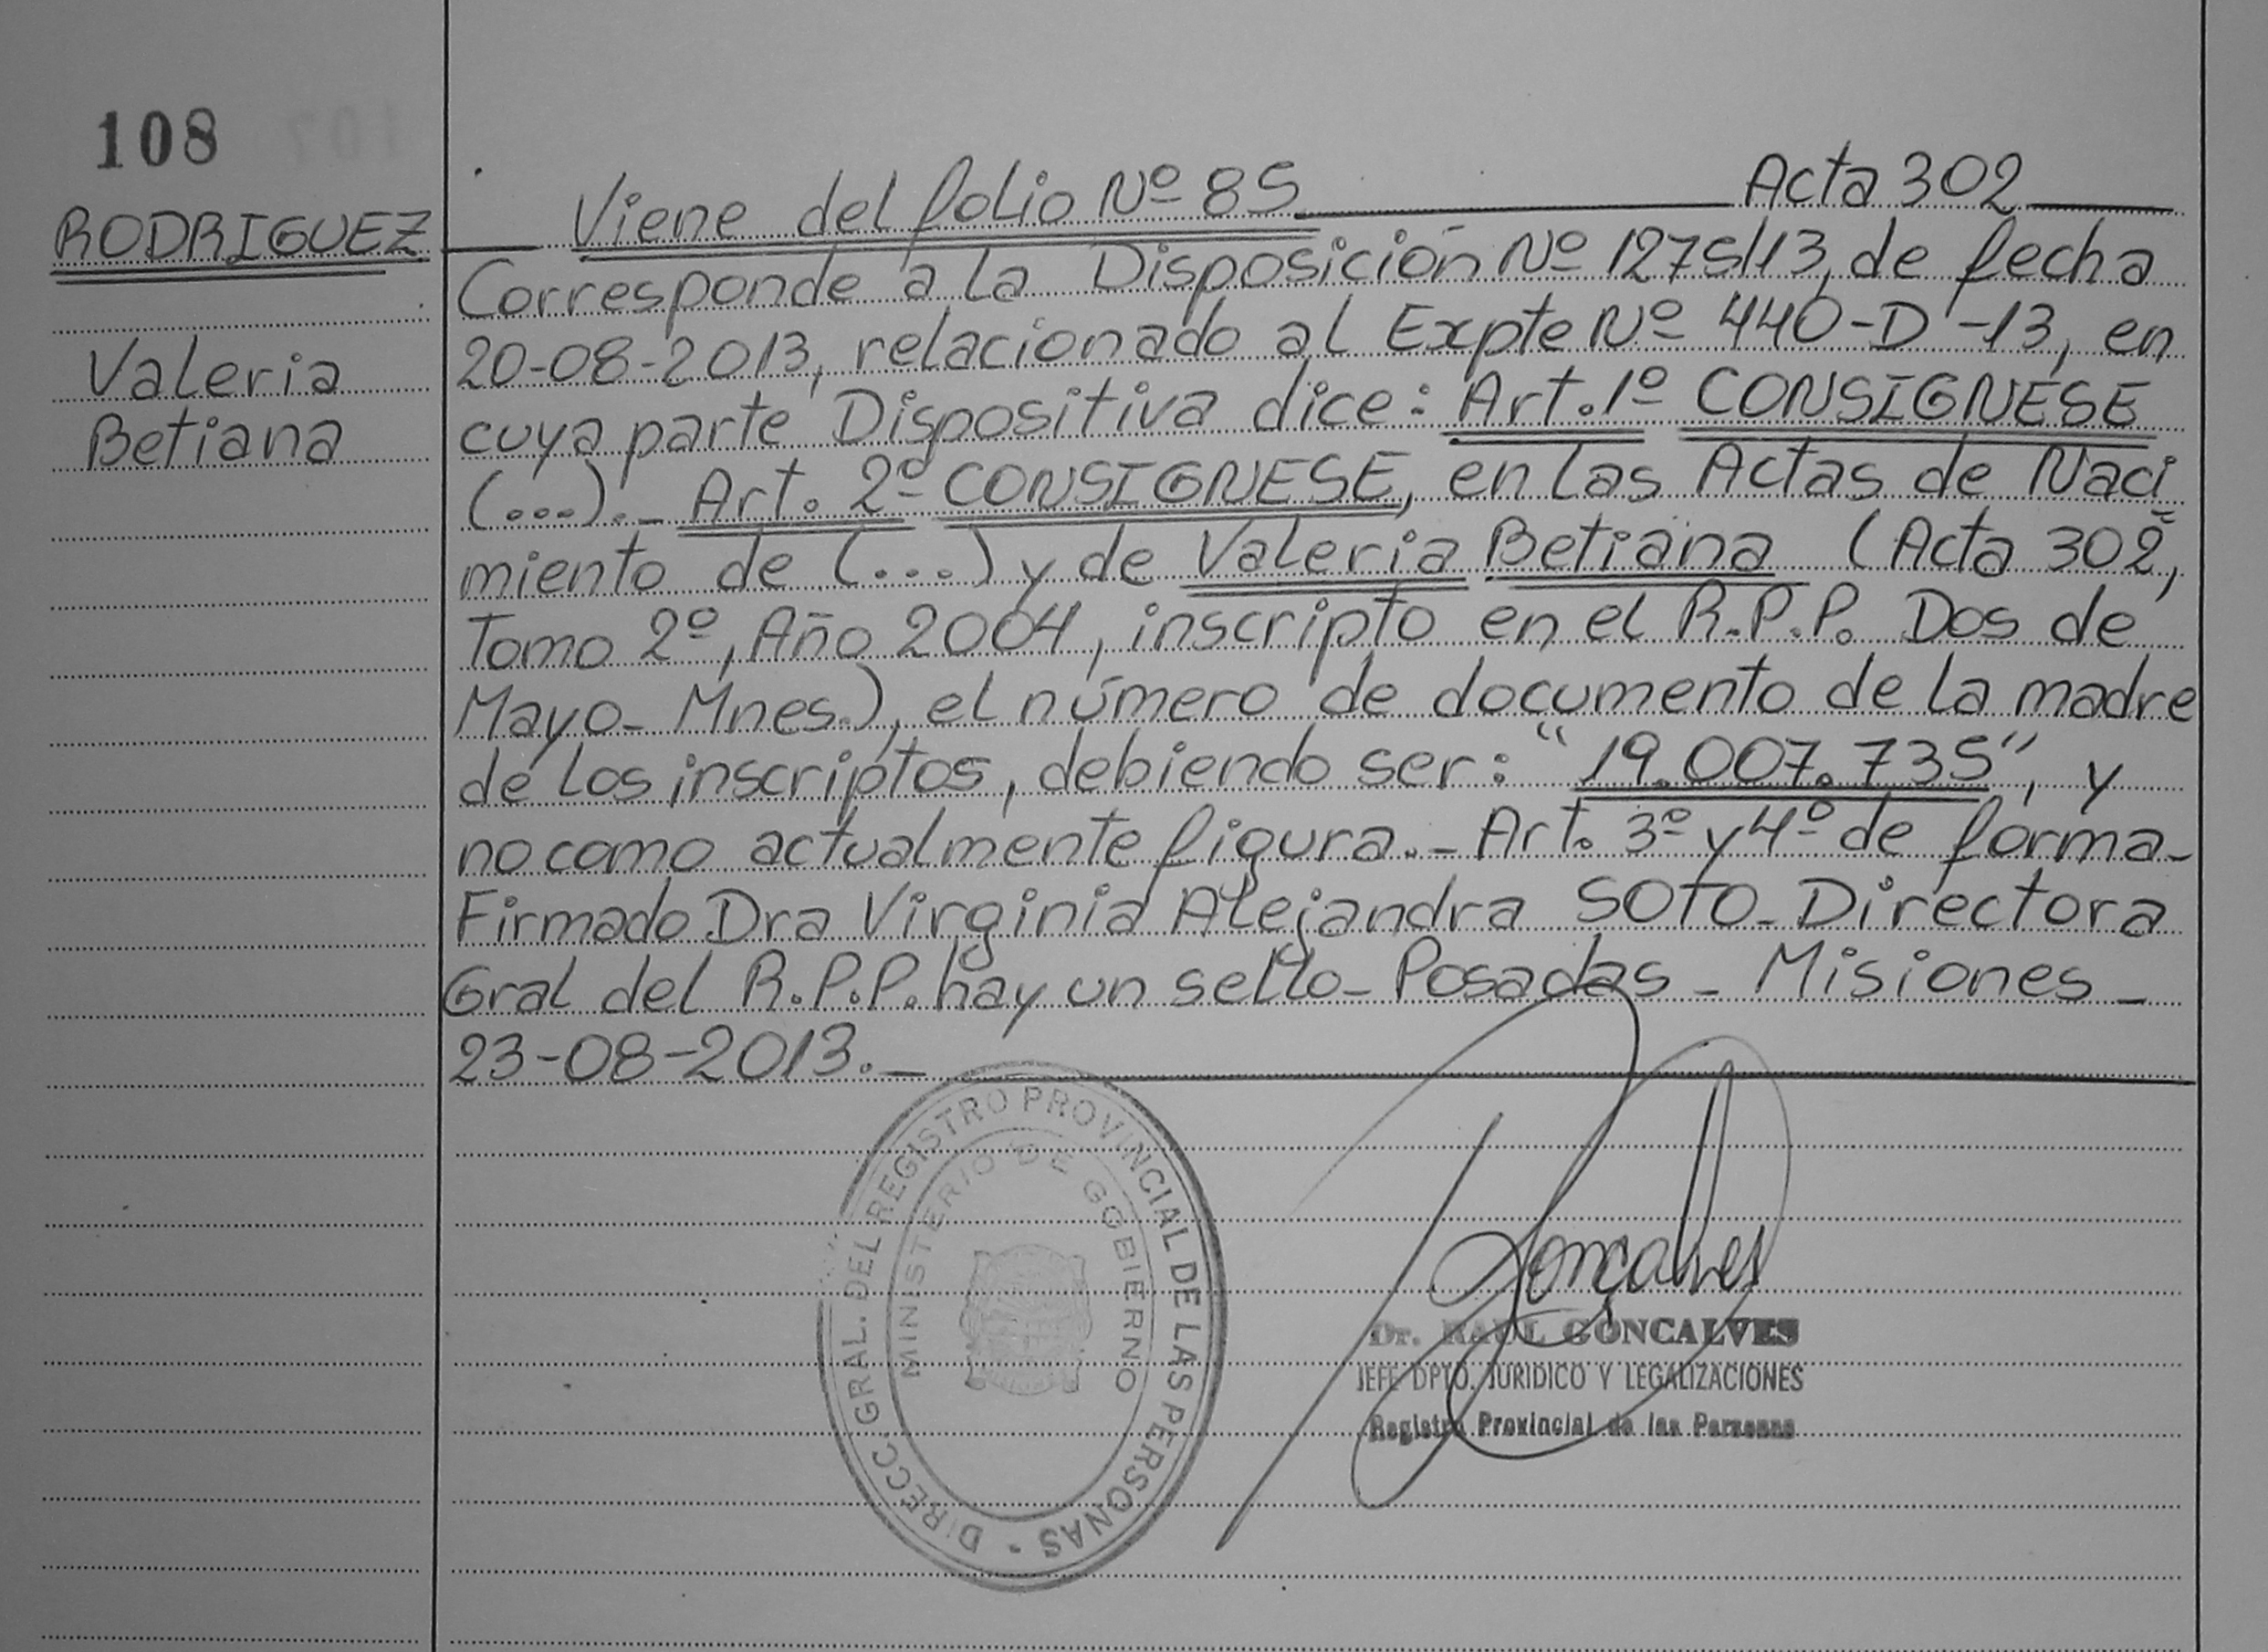 108
RODRIGUEZ
Valeria
Betiana
Viene del folio Nº 85 Acta 302
Corresponde a la Disposición Nº 1275/13, de fecha
20-08-2013, relacionado al Expte Nº 440-D-13, en
cuya parte Dispositiva dice: Art. 1º CONSIGNESE
(...)._ Art. 2º CONSIGNESE, en las Actas de Naci=
miento de (...) y de Valeria Betiana (Acta 302,
Tomo 2º, Año 2004, inscripto en el R.P.P. Dos de
Mayo- Mnes.), el número de documento de la madre
de los inscriptos, debiendo ser: "19.007.735", y
no como actualmente figura._ Art. 3º y 4º de forma-
Firmado Dra Virginia Alejandra SOTO- Directora
Gral del R.P.P. hay un sello- Posadas - Misiones -
23-08-2013._
DIRECC. GRAL. DEL REGISTRO PROVINCIAL DE LAS PERSONAS -
MINISTERIO DE GOBIERNO
Gonçalves
Dr. RAUL GONCALVES
JEFE DPTO. JURIDICO Y LEGALIZACIONES
Registro Provincial de las Personas